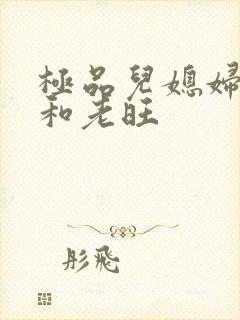 極品兒媳婦
和老旺
彤飛